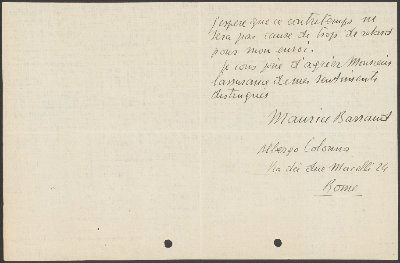 j'espère que ce contretemps ne
sera pas cause de trop de retard
pour mon envoi.
Je vous prie d'agréer Monsieur
l'assurance de mes sentiments
distingués
Maurice Barraud
Albergo Colonna
Via dei due Macelli 24
Rome